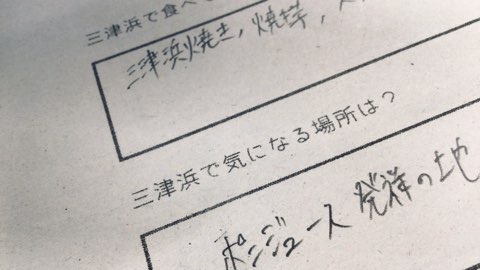 三津浜で食べ
三津浜焼き, 焼芋,
三津浜で気になる場所は？
ポンジュース 発祥の地